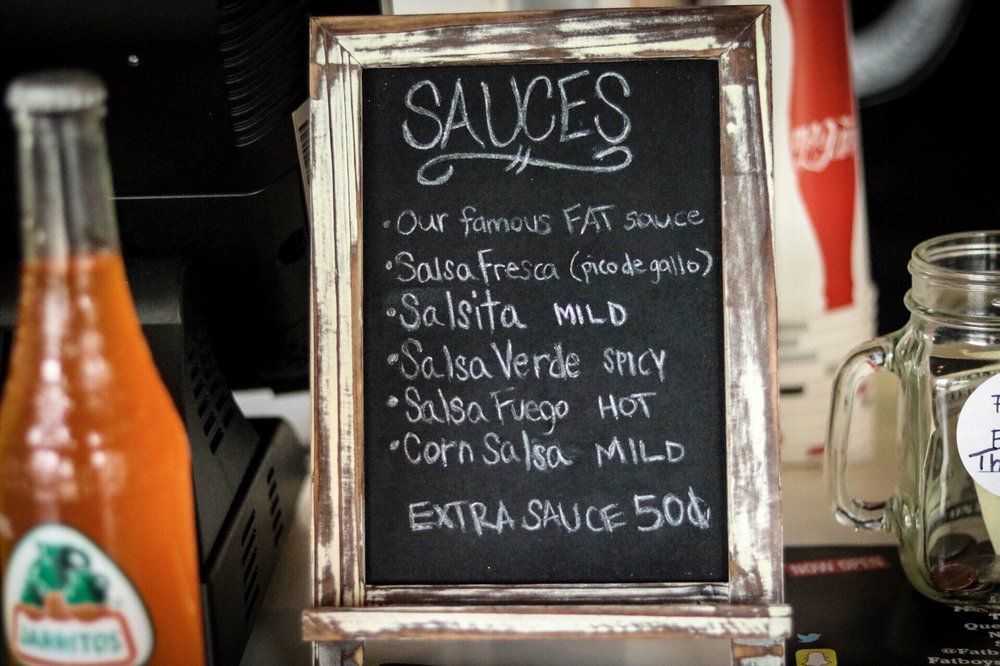 SAUCES
• Our famous FAT sauce
• Salsa Fresca (pico de gallo)
• Salsita MILD
• Salsa Verde SPICY
• Salsa Fuego HOT
• Corn Salsa MILD
EXTRA SAUCE 50¢
JARRITOS
Coca-Cola
NOW OPEN